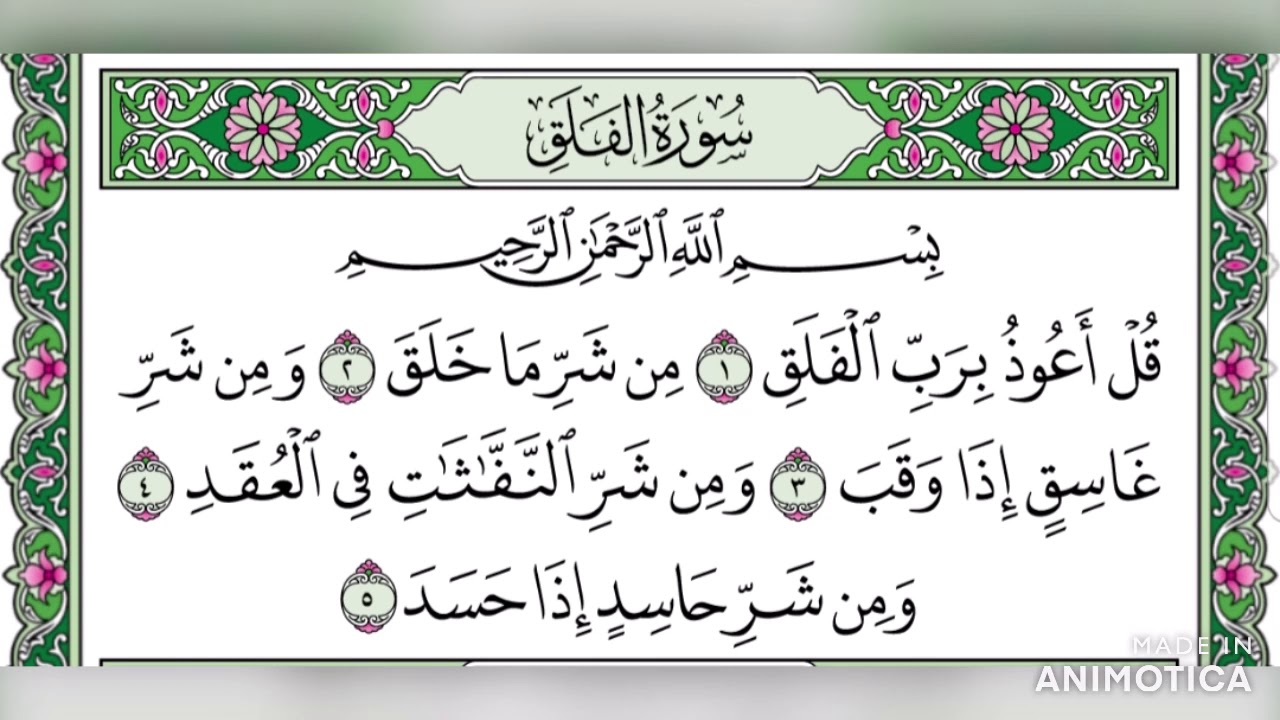 سُورَةُ الفَلَقِ
بِسْمِ ٱللَّهِ ٱلرَّحْمَٰنِ ٱلرَّحِيمِ
قُلْ أَعُوذُ بِرَبِّ ٱلْفَلَقِ ١ مِن شَرِّ مَا خَلَقَ ٢ وَمِن شَرِّ
غَاسِقٍ إِذَا وَقَبَ ٣ وَمِن شَرِّ ٱلنَّفَّٰثَٰتِ فِى ٱلْعُقَدِ ٤
وَمِن شَرِّ حَاسِدٍ إِذَا حَسَدَ ٥
MADE IN
ANIMOTICA